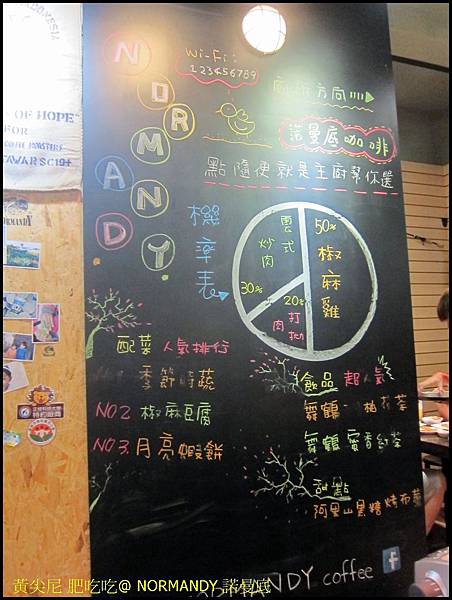 INDONESIA
OF HOPE"
FOR
COFFEE ROASTERS
NORMANDY
NORMANDY
Wi-Fi:
123456789
廁所方向
諾曼底咖啡
點隨便就是主廚幫你選
機率表
雲式炒肉
50% 椒麻雞
30%
20% 打拋肉
配菜 人氣排行
季節時蔬
NO2 椒麻豆腐
NO3. 月亮蝦餅
飲品 超人氣
舞鶴 柚花茶
舞鶴 蜜香紅茶
甜點
阿里山黑糖烤布蕾
NORMANDY coffee
f
黃尖尼 肥吃吃@ NORMANDY 諾曼底